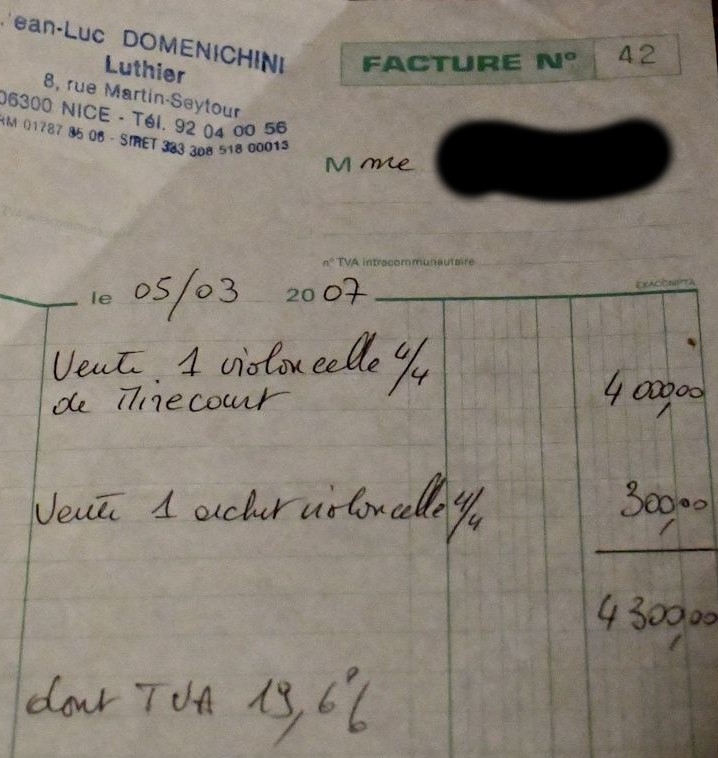 Jean-Luc DOMENICHINI
Luthier
8, rue Martin-Seytour
06300 NICE - Tél. 92 04 00 56
RM 01787 85 06 - SIRET 383 308 518 00013
FACTURE N° 42
Mme
n° TVA intracommunautaire
EXACOMPTA
le 05/03 2007
Vente 1 violoncelle 4/4
de Mirecourt 4 000,00
Vente 1 archet violoncelle 4/4 300,00
4 300,00
dont TVA 19,6%